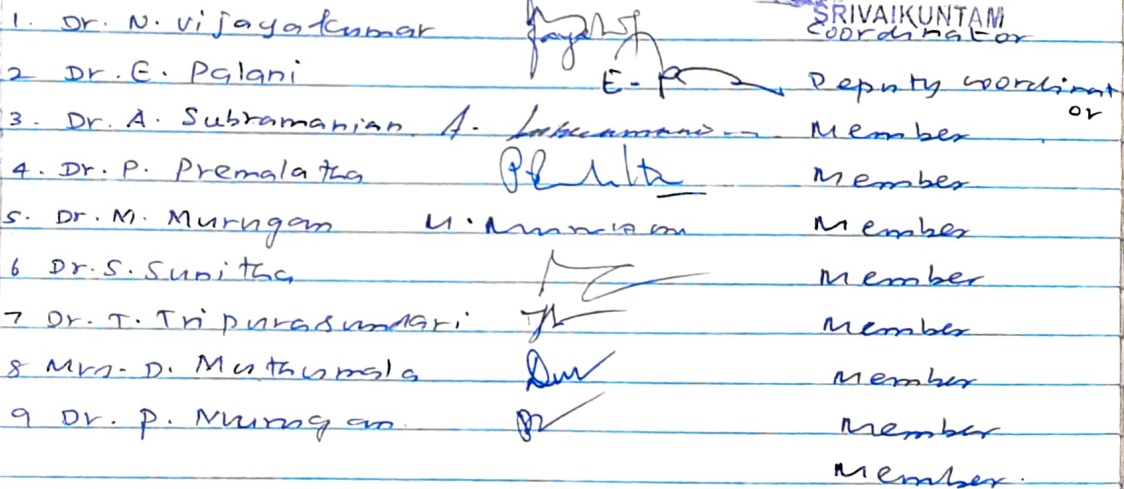 SRIVAIKUNTAM
1. Dr. N. Vijayakumar Coordinator
2 Dr. E. Palani E. P Deputy coordinat
or
3. Dr. A. Subramanian A. Subramanian Member
4. Dr. P. Premalatha Member
5. Dr. M. Murugan M. Murugan Member
6 Dr. S. Sunitha Member
7 Dr. T. Tripurasundari Member
8 Mrs. D. Muthumala Member
9 Dr. P. Murugan Member
Member.